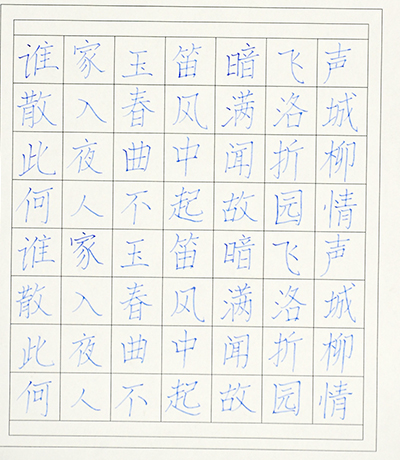 谁家玉笛暗飞声
散入春风满洛城
此夜曲中闻折柳
何人不起故园情
谁家玉笛暗飞声
散入春风满洛城
此夜曲中闻折柳
何人不起故园情